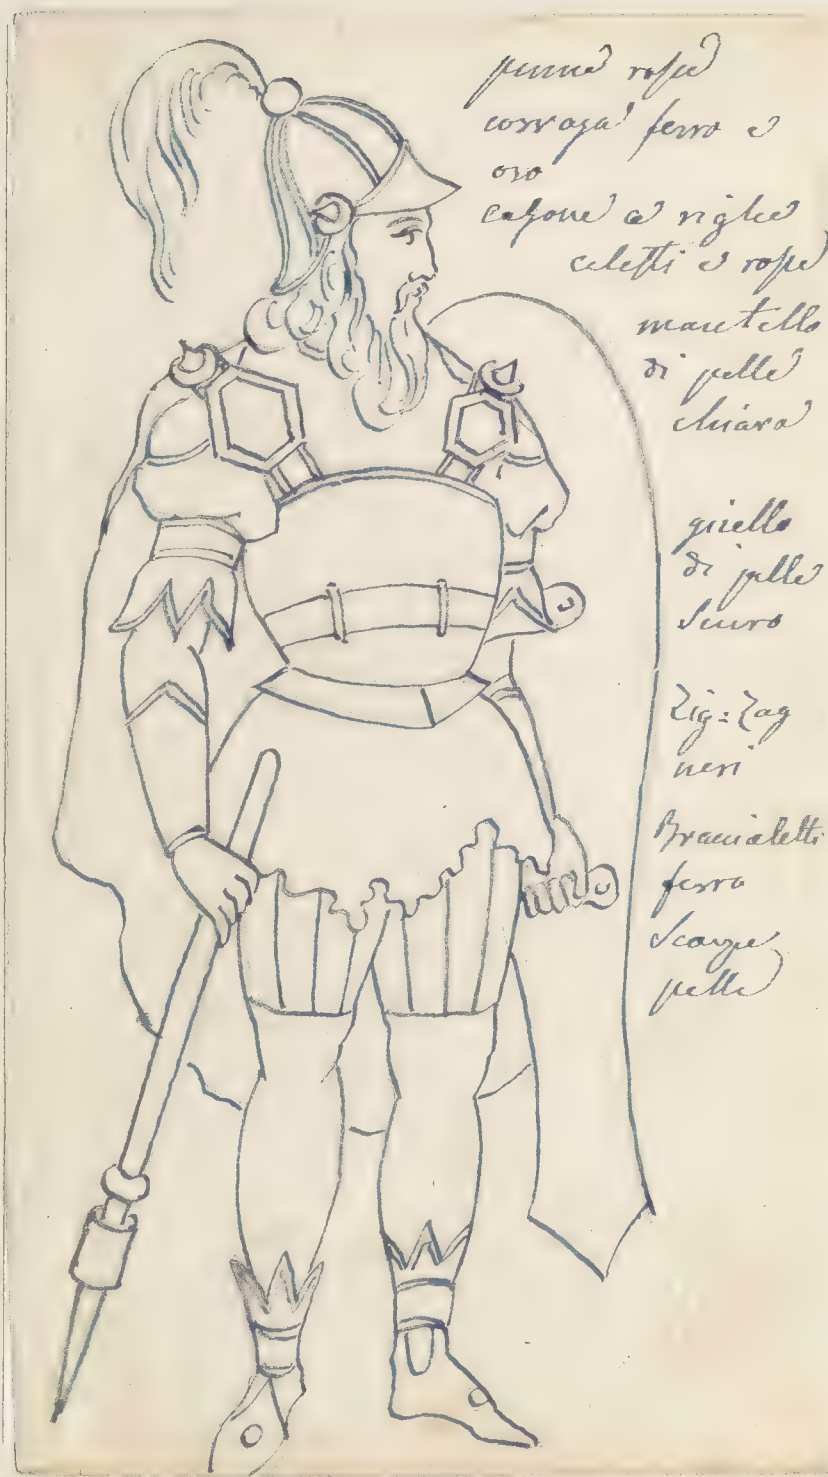 penne rosse
corraza ferro e
oro
calzone a righe
celesti e rosse
mantello
di pelle
chiara
giello
di pelle
scuro
Zig=Zag
neri
Braccialetti
ferro
Scarpe
pelle